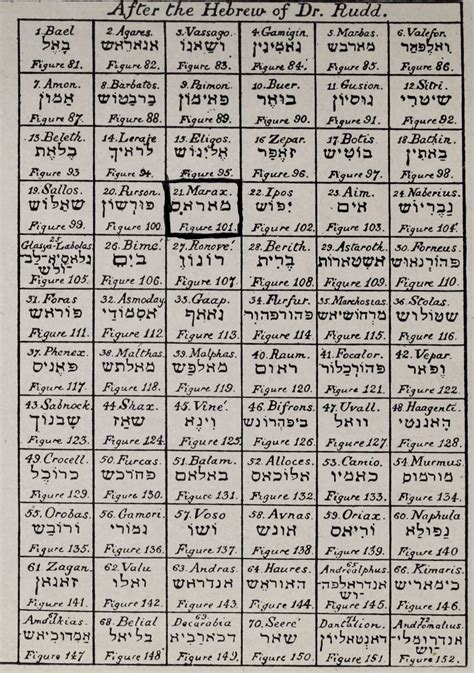 After the Hebrew of Dr. Rudd.
1. Bael 2. Agares. 3. Vassago. 4. Gamigin. 5. Marbas. 6. Valefor.
באל אגאראש ושאגו מארבש
Figure 81. Figure 82. Figure 83. Figure 84. Figure 85. Figure 86.
7. Amon. 8. Barbatos. 9. Paimon. 10. Buer. 11. Gusion. 12. Sitri.
אמון ברבטוש פאימון בואר גוסיון שיטרי
Figure 87. Figure 88. Figure 89. Figure 90. Figure 91. Figure 92.
13. Beleth. 14. Leraje 15. Eligos. 16. Zepar. 17. Botis 18. Bathin.
בלאת זאפר בוטיש באתין
Figure 93 Figure 94. Figure 95. Figure 96. Figure 97. Figure 98.
19. Sallos. 20. Purson. 21. Marax. 22. Ipos 23. Aim. 24. Naberius.
שאלוש פורשון מאראס יפוש אים נבריוש
Figure 99. Figure 100. Figure 101. Figure 102. Figure 103. Figure 104.
Glasya-Labolas 26. Bimé. 27. Ronové. 28. Berith. 29. Astaroth. 30. Forneus
בים רונון ברית
Figure 105. Figure 106. Figure 107. Figure 108. Figure 109. Figure 110.
31. Foras 32. Asmoday. 33. Gaap. 34. Furfur. 35. Marchosias. 36. Stolas.
פוראש אסמודי גאאף שטולוש
Figure 111. Figure 112. Figure 113. Figure 114. Figure 115. Figure 116.
37. Phenex. 38. Malthas. 39. Malphas. 40. Raum. 41. Focalor. 42. Vepar.
פאניס מאלתש מאלפש ראום פהורכלור ופאר
Figure 117. Figure 118. Figure 119. Figure 120. Figure 121. Figure 122.
43. Sabnock. 44. Shax. 45. Viné. 46. Bifrons. 47. Uvall. 48. Haagenti.
שבנוך שאז וינא וואל האגנטי
Figure 123. Figure 124. Figure 125. Figure 126. Figure 127. Figure 128.
49. Crocell. 50. Furcas. 51. Balam. 52. Alloces. 53. Camio. 54. Murmus.
כרוכל באלאם אלוכאס כאמיו מורמוס
Figure 129. Figure 130. Figure 131. Figure 132. Figure 133. Figure 134.
55. Orobas. 56. Gamori. 57. Voso 58. Avnas. 59. Oriax. 60. Naphula
ורובש גמורי ושו אונש וריאס נפולא
Figure 135. Figure 136. Figure 137. Figure 138 Figure 139. Figure 140.
61 Zagan. 62. Valu 63. Andras. 64. Haures. 65 Andrealphus. 66. Kimaris.
זאגאן ואלו אנדראש האוראש כימאריש
Figure 141. Figure 142. Figure 143. Figure 144. Figure 145. Figure 146.
Amdukias. 68. Belial 69. Decarabia 70. Seeré Dantalion. Andromalius
אמדוכיאש בליאל דכארביא שאר דאנטאליון
Figure 147 Figure 148 Figure 149. Figure 150 Figure 151. Figure 152.